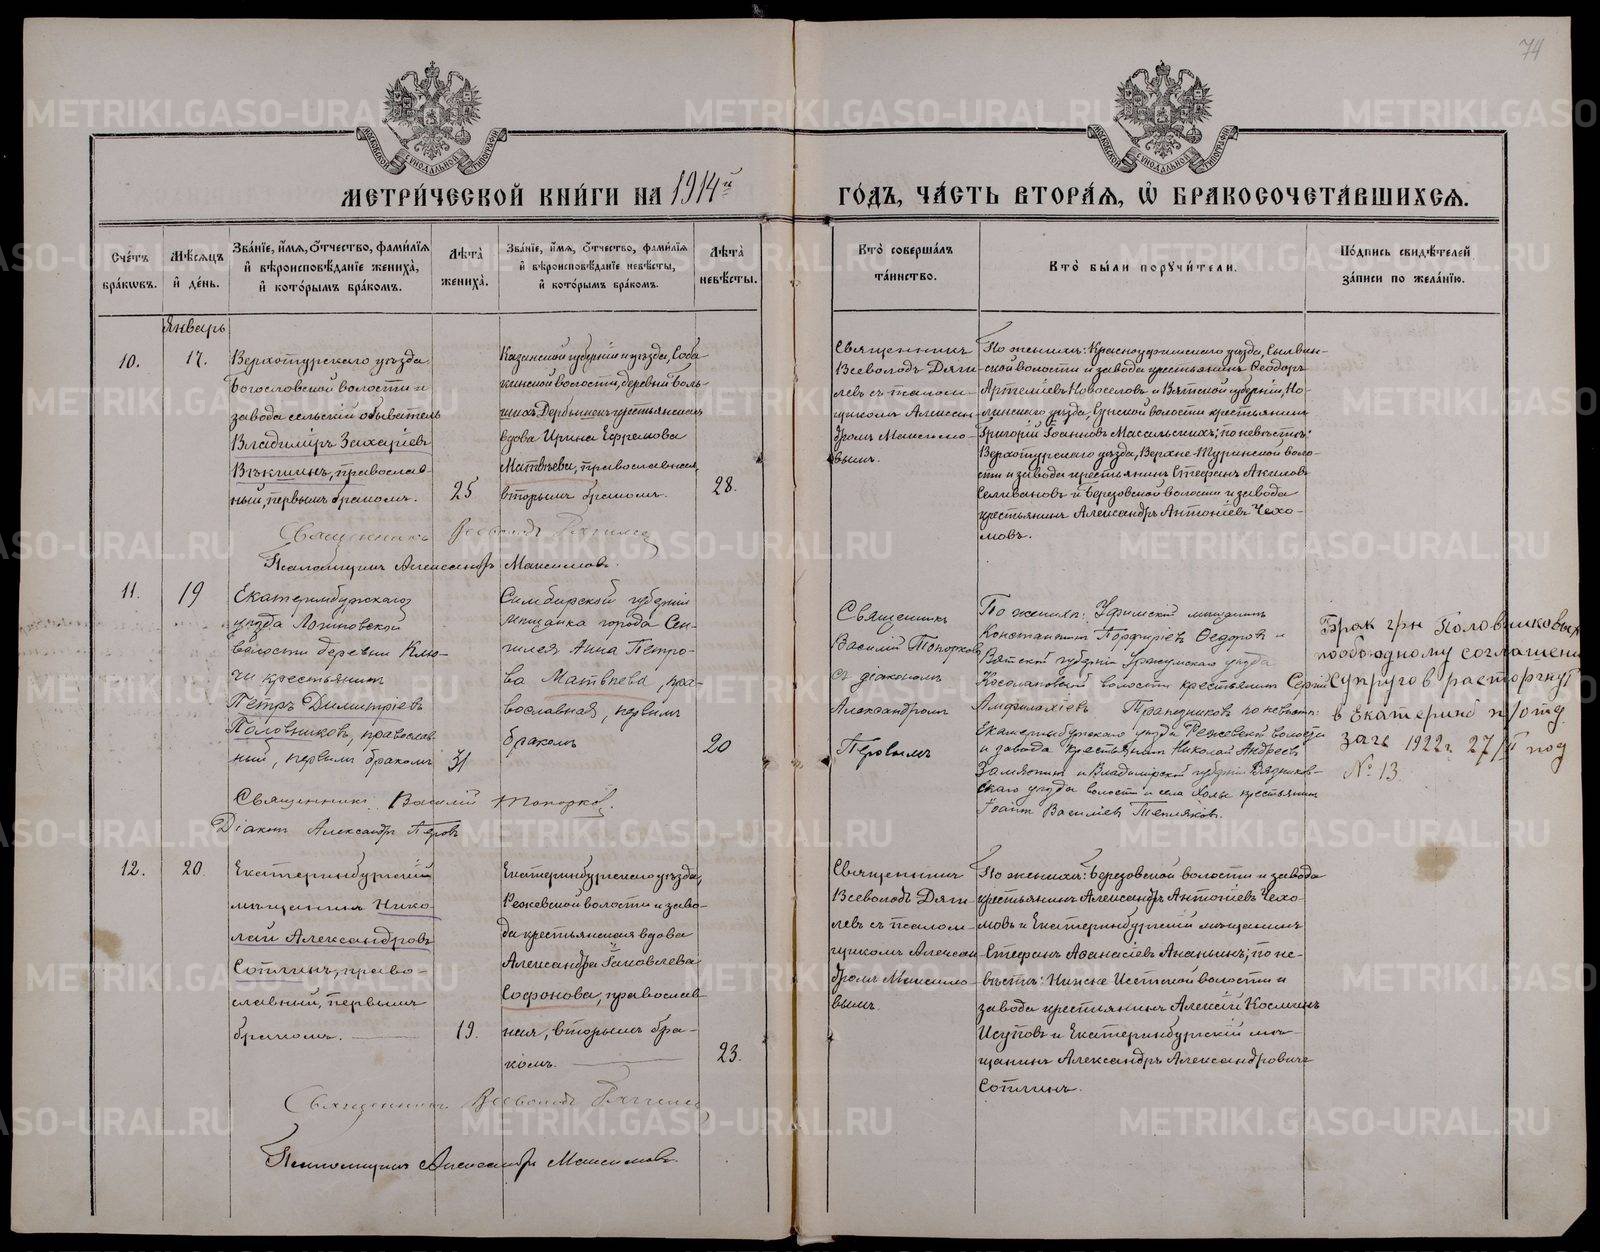 74
МОСКОВСКОЙ СѴНОДАЛЬНОЙ ТИПОГРАФІИ
МОСКОВСКОЙ СѴНОДАЛЬНОЙ ТИПОГРАФІИ
МЕТРИ́ЧЕСКОЙ КНИ́ГИ НА 1914й ГО́ДЪ, ЧА́СТЬ ВТОРА́Ѧ, Ѽ БРАКОСОЧЕТА́ВШИХСѦ.
Сче́тъ бра́кѡвъ.
Мѣ́сѧцъ и҆ де́нь.
Зва́нїе, и҆́мѧ, ѻ҆́тчество, фами́лїѧ и҆ вѣроисповѣ́данїе жениха̀, и҆ кото́рымъ бра́комъ.
Лѣ́та жениха̀.
Зва́нїе, и҆́мѧ, ѻ҆́тчество, фами́лїѧ и҆ вѣроисповѣ́данїе невѣ́сты, и҆ кото́рымъ бра́комъ.
Лѣ́та невѣ́сты.
Кто̀ соверша́лъ та́инство.
Кто̀ бы́ли порꙋчи́тели.
По́дпись свидѣ́телей за́писи по жела́нїю.
Январь
10.
17.
Верхотурскаго уѣзда
Богословской волости и
завода сельскій обыватель
Владиміръ Захаріевъ
Вѣкшинъ, православ-
ный, первымъ бракомъ.
25
Казанской губерніи и уѣзда, Соба
кинской волости, деревни Боль-
шихъ Дербышекъ крестьянская
вдова Ирина Ефремова
Матвѣева, православная,
вторымъ бракомъ.
28.
Священникъ
Всеволодъ Дяги
левъ съ псалом-
щикомъ Алексан
дромъ Максимо-
вымъ.
По женихѣ: Красноуфимскаго уѣзда, Сылвин-
ской волости и завода крестьянинъ Ѳеодоръ
Артеміевъ Новоселовъ и Вятской губерніи, Но-
линскаго уѣзда, Сунской волости крестьянинъ
Григорій Іоанновъ Массальскихъ; по невѣстѣ:
Верхотурскаго уѣзда, Верхне-Туринской воло-
сти и завода крестьянинъ Стефанъ Акиловъ
Селивановъ и Березовской волости и завода
крестьянинъ Александръ Антоніевъ Чехо-
мовъ.
Священникъ Всеволодъ Дягилевъ
Псаломщикъ Александръ Максимовъ.
11.
19
Екатеринбургскаго
уѣзда Логиновской
волости деревни Клю-
чи крестьянинъ
Петръ Димитріевъ
Половниковъ, православ
ный, первымъ бракомъ
31
Симбирской губерніи
мѣщанка города Сен-
гилея Анна Петро-
ва Матвѣева, пра-
вославная, первымъ
бракомъ
20
Священникъ
Василій Топорковъ
съ діакономъ
Александромъ
Перовымъ
По женихѣ: Уфимскій мѣщанинъ
Константинъ Порфиріевъ Ѳедоровъ и
Вятской губерніи Уржумскаго уѣзда
Косолаповской волости крестьянинъ Сергій
Амфилохіевъ Трапезниковъ по невѣстѣ:
Екатеринбургскаго уѣзда Режевской волости
и завода крестьянинъ Николай Андреевъ
Замятинъ и Владимірской губерніи Вязников-
скаго уѣзда волости и села Холуя крестьянинъ
Іоаннъ Василіевъ Тепляковъ.
Брак гр-н Половниковых
по обоюдному соглашени
супругов расторгнут
в Екатеринб п/отд.
загс 1922 г. 27/I под
№ 13
Священникъ Василій Топорковъ.
Діаконъ Александръ Перовъ
12.
20.
Екатеринбургскій
мѣщанинъ Нико-
лай Александровъ
Сотлинъ, право-
славный, первымъ
бракомъ.
19.
Екатеринбургскаго уѣзда,
Режевской волости и заво-
да крестьянская вдова
Александра Іаковлева
Софонова, православ
ная, вторымъ бра-
комъ.
23.
Священникъ
Всеволодъ Дяги
левъ съ псалом-
щикомъ Алексан
дромъ Максимо
вымъ.
По женихѣ: Березовской волости и завода
крестьянинъ Александръ Антоніевъ Чехо-
мовъ и Екатеринбургскій мѣщанинъ
Стефанъ Аѳанасіевъ Ананьинъ; по не-
вѣстѣ: Нижне Исетской волости и
завода крестьянинъ Алексій Косминъ
Исуповъ и Екатеринбургскій мѣ-
щанинъ Александръ Александровичъ
Сотлинъ.
Священникъ Всеволодъ Дягилевъ
Псаломщикъ Александръ Максимовъ.
METRIKI.GASO-URAL.RU